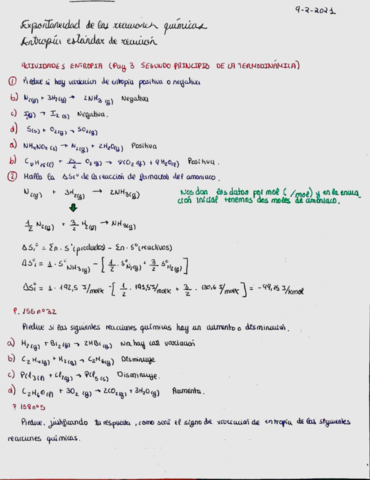 9-2-2021
Espontaneidad de las reacciones químicas
Entropía estándar de reacción
ACTIVIDADES ENTROPÍA (Pág 3 SEGUNDO PRINCIPIO DE LA TERMODINÁMICA)
① Predice si hay variación de entropía positiva o negativa.
b) N₂(g) + 3H₂(g) → 2NH₃(g) Negativa
c) I₂(g) → I₂(s) Negativa.
d) S(s) + O₂(g) → SO₂(g)
a) NH₄NO₃(s) → N₂(g) + 2H₂O(g) Positiva
b) C₈H₁₈(l) + 25/2 O₂(g) → 8CO₂(g) + 9H₂O(g) Positiva.
② Halla la ΔS de la reacción de formación del amoníaco.
N₂(g) + 3H₂(g) → 2NH₃(g)
Nos dan los datos por mol (/mol) y en la
ción inicial tenemos dos moles de amoníaco.
1/2 N₂(g) + 3/2 H₂(g) → NH₃(g)
ΔS° = Σn · S°(productos) - Σn · S°(reactivos)
ΔS° = 1 · S°NH₃(g) - [1/2 · S°N₂(g) + 3/2 S°H₂(g)]
ΔS° = 1 · 192,5 J/molK - [1/2 · 191,5 J/molK + 3/2 · 130,6 J/molK] =
P. 156 nº 32
Predice si las siguientes reacciones químicas hay un aumento o disminución.
a) H₂(g) + Br₂(g) → 2HBr(g) No hay variación
b) C₂H₄(g) + H₂(g) → C₂H₆(g) Disminuye
c) PCl₃(l) + Cl₂(g) → PCl₅(s) Disminuye.
d) C₂H₆O(l) + 3O₂(g) → 2CO₂(g) + 3H₂O(g) Aumenta.
P. 158 nº 5
Predice, justificando tu respuesta, como será el signo de variación de entropía de las siguientes
reacciones químicas.